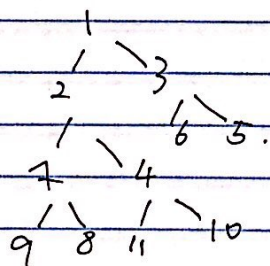 1
2 3
6 5.
7 4
9 8 11 10